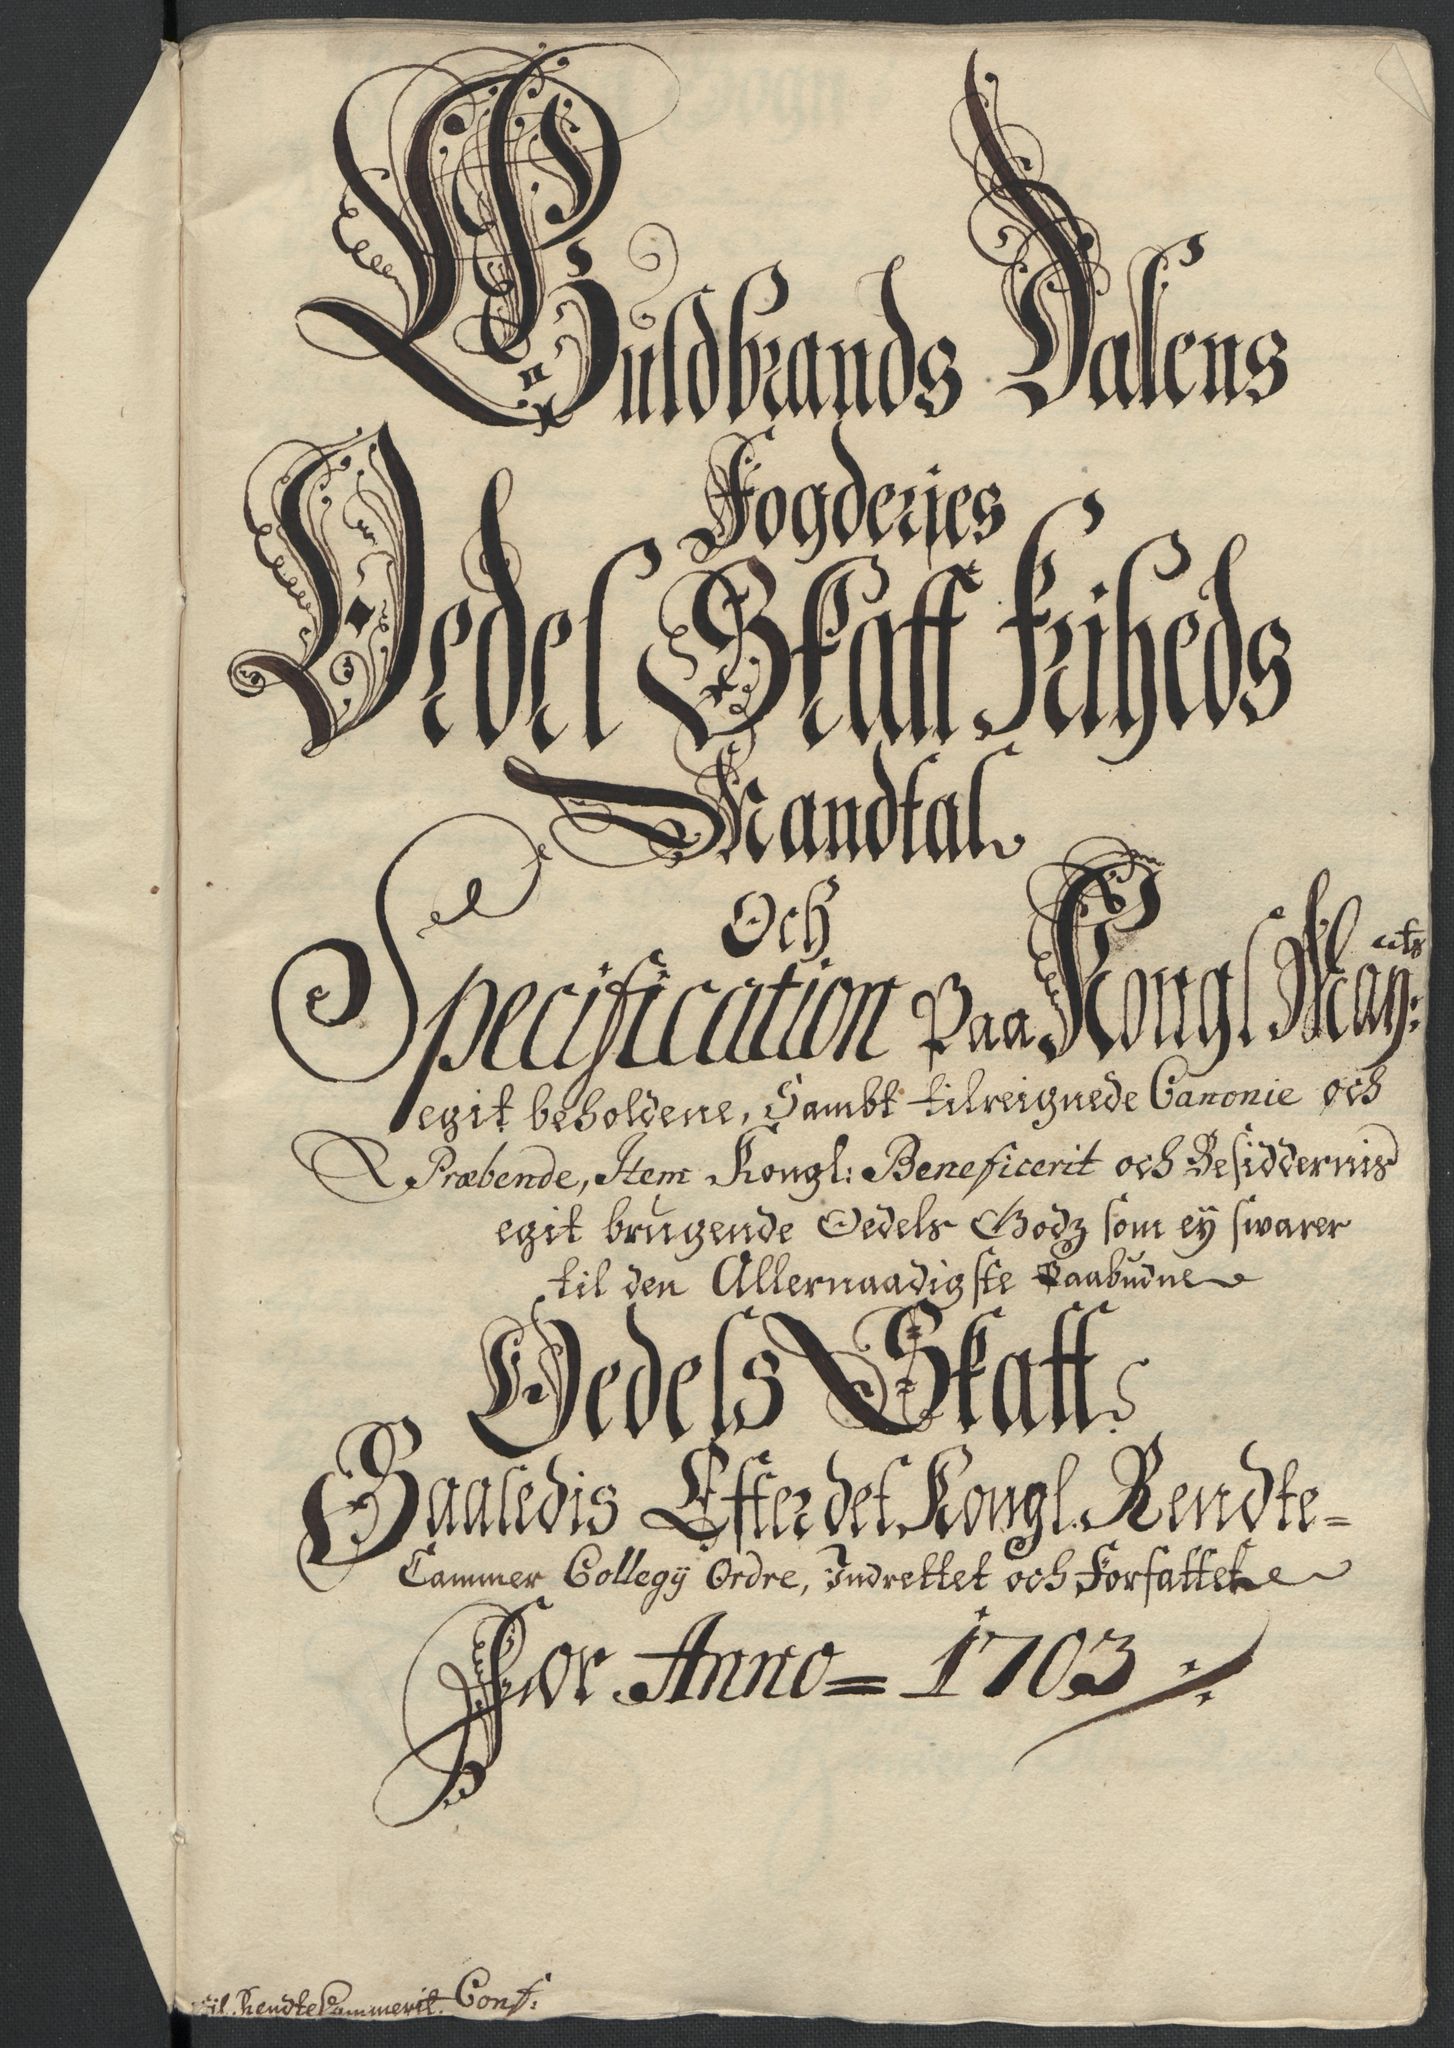 Guldbrands Dalens
Fogderies
Oedel Skatt friheds
Mandtal
Och
Specification Paa Kongl May:ts
egit beholdene, Sambt tilreignede Canonie och
Præbende, Item Kongl: Beneficerit och Besiddernis
egit brugende Oedels Godz som ey swarer
til den Allernaadigste Paabudne
Oedels Skatt
Saaledis Efter det Kongl. Rendte=
Cammer Collegy Ordre, Indrettet och Forfattet
For Anno= 1703
til RendteCammerit. Conf: